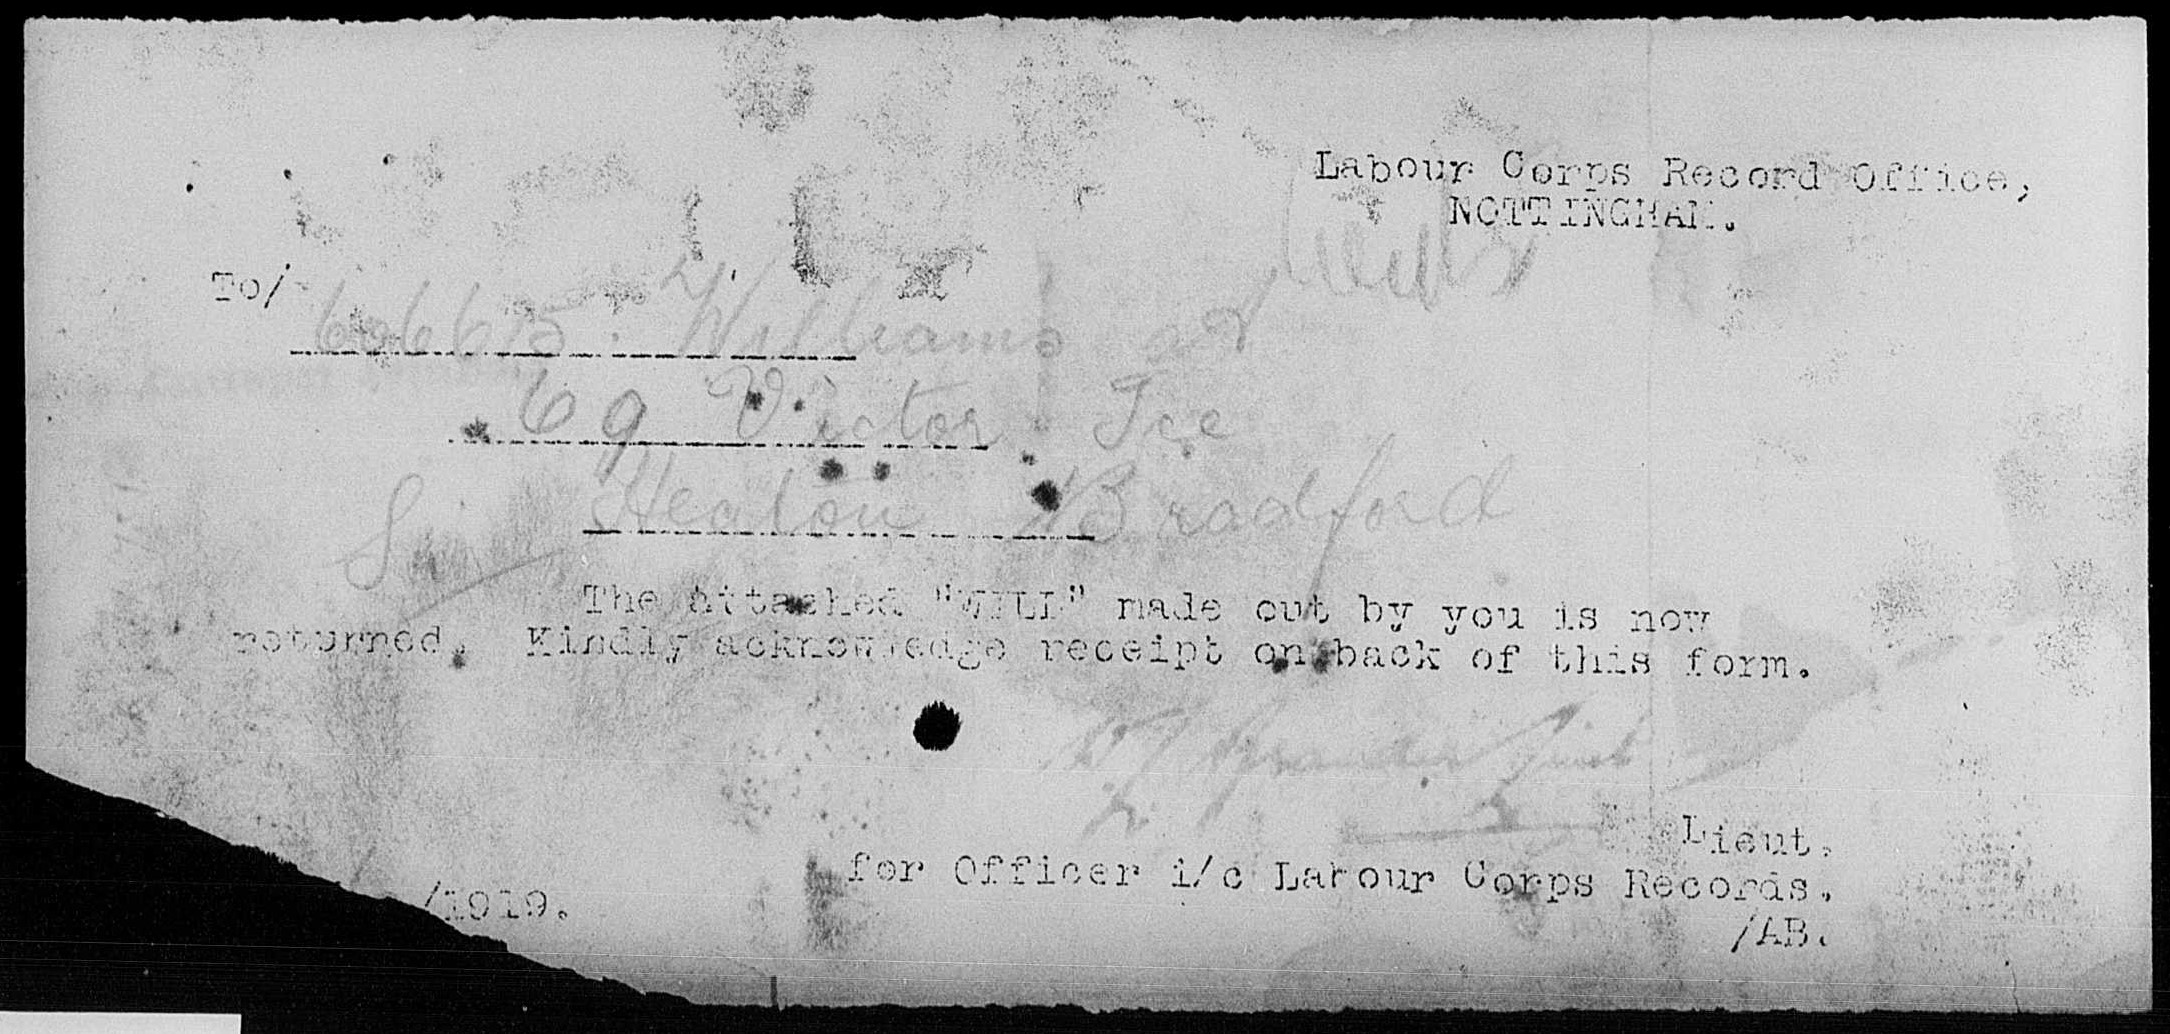 Labour Corps Record Office,
NOTTINGHAM.
To/
606615. Williams
69 Victor Tce
Heaton Bradford
The attached "WILL" made out by you is now
returned. Kindly acknowledge receipt on back of this form.
Lieut.
for Officer i/c Labour Corps Records.
/1919.
/AB.